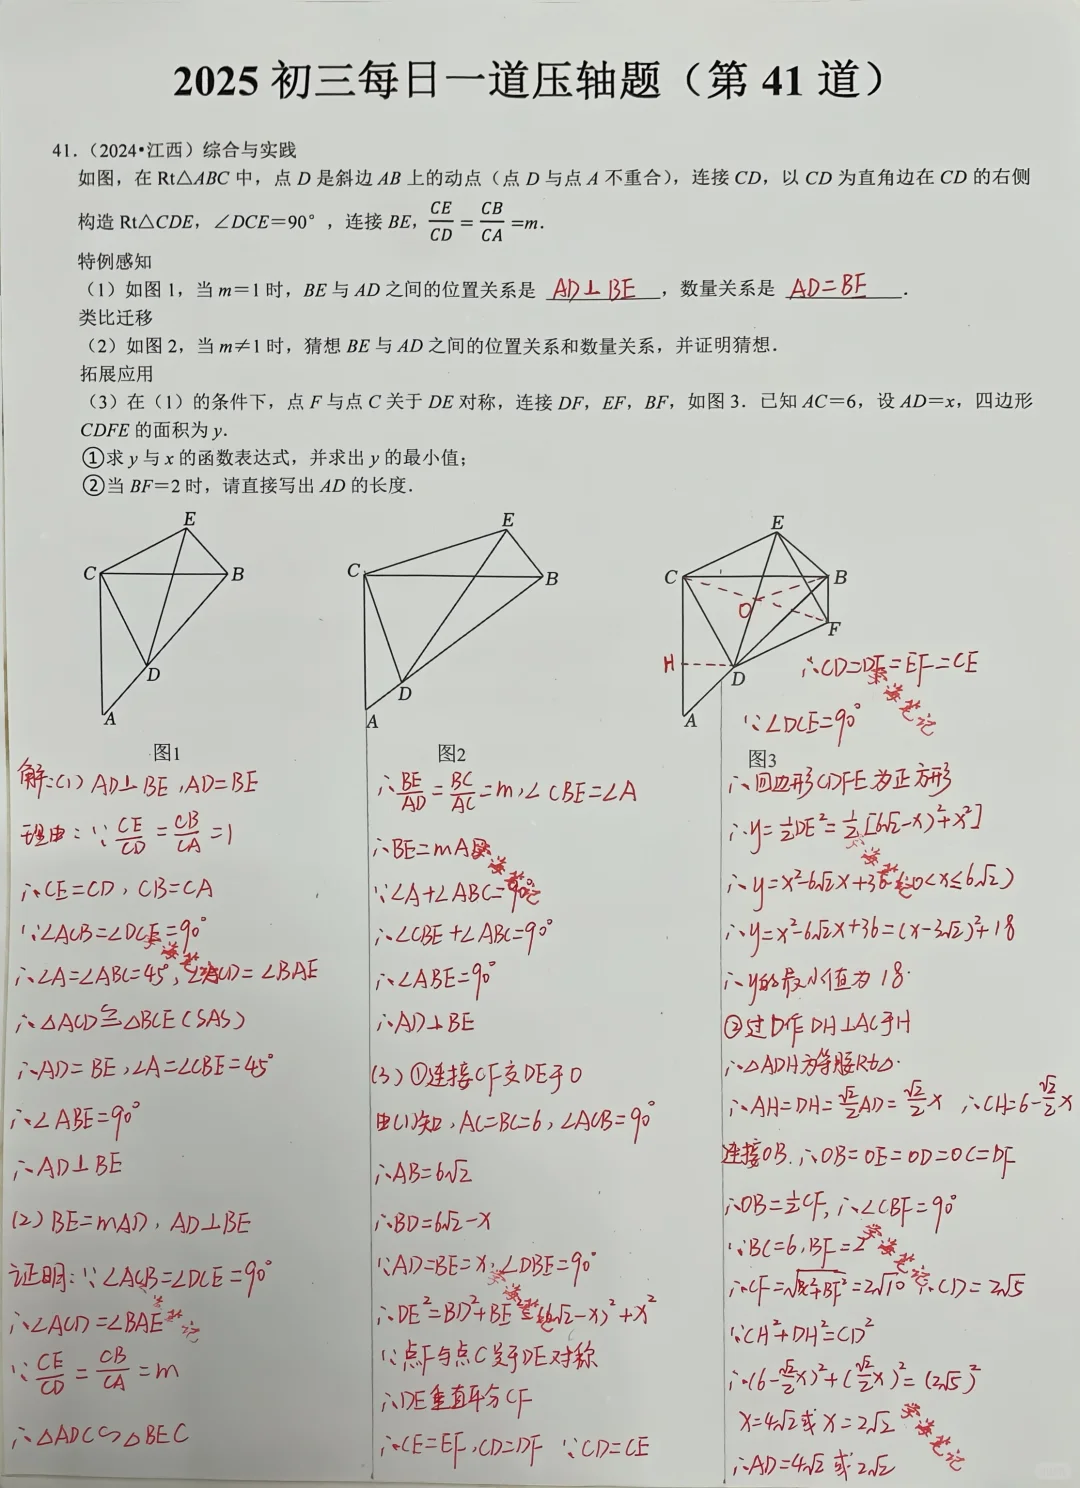 2025 初三每日一道压轴题（第 41 道）
41.（2024•江西）综合与实践
如图，在 Rt△ABC 中，点 D 是斜边 AB 上的动点（点 D 与点 A 不重合），连接 CD，以 CD 为直角边在 CD 的右侧
构造 Rt△CDE，∠DCE＝90°，连接 BE，CE/CD＝CB/CA＝m．
特例感知
（1）如图 1，当 m＝1 时，BE 与 AD 之间的位置关系是 AD⊥BE，数量关系是 AD=BE．
类比迁移
（2）如图 2，当 m≠1 时，猜想 BE 与 AD 之间的位置关系和数量关系，并证明猜想．
拓展应用
（3）在（1）的条件下，点 F 与点 C 关于 DE 对称，连接 DF，EF，BF，如图 3．已知 AC＝6，设 AD＝x，四边形
CDFE 的面积为 y．
①求 y 与 x 的函数表达式，并求出 y 的最小值；
②当 BF＝2 时，请直接写出 AD 的长度．
E
C
B
D
A
图1
E
C
B
D
A
图2
E
C
B
O
F
H
D
A
图3
解:(1) AD⊥BE,AD=BE
理由：∵CE/CD=CB/CA=1
∴CE=CD, CB=CA
∵∠ACB=∠DCE=90°
∴∠A=∠ABC=45°,∠ACD=∠BAE
∴△ACD≌△BCE(SAS)
∴AD=BE,∠A=∠CBE=45°
∴∠ABE=90°
∴AD⊥BE
(2) BE=mAD, AD⊥BE
证明：∵∠ACB=∠DCE=90°
∴∠ACD=∠BAE
∵CE/CD=CB/CA=m
∴△ADC∽△BEC
∴BE/AD=BC/AC=m,∠CBE=∠A
∴BE=mAD
∵∠A+∠ABC=90°
∴∠CBE+∠ABC=90°
∴∠ABE=90°
∴AD⊥BE
(3) ①连接CF交DE于O
由(1)知, AC=BC=6, ∠ACB=90°
∴AB=6√2
∴BD=6√2-x
∵AD=BE=x,∠DBE=90°
∴DE²=BD²+BE²=(6√2-x)²+x²
∵点F与点C关于DE对称
∴DE垂直平分CF
∴CE=EF,CD=DF ∵CD=CE
∴CD=DF=EF=CE
∵∠DCE=90°
∴四边形CDFE为正方形
∴y=½DE²=½[6√2-x)²+x²]
∴y=x²-6√2x+36(0<x≤6√2)
∴y=x²-6√2x+36=(x-3√2)²+18
∴y的最小值为18
②过D作DH⊥AC于H
∴△ADH为等腰Rt△
∴AH=DH=√2/2AD=√2/2x ∴CH=6-√2/2x
连接OB.∴OB=OE=OD=OC=DF
∴OB=½CF,∴∠CBF=90°
∵BC=6,BF=2
∴CF=√BC²+BF²=2√10 ∴CD=2√5
∵CH²+DH²=CD²
∴(6-√2/2x)²+(√2/2x)²=(2√5)²
x=4√2或x=2√2
∴AD=4√2或2√2
学海笔记
学海笔记
学海笔记
学海笔记
学海笔记
学海笔记
学海笔记
学海笔记